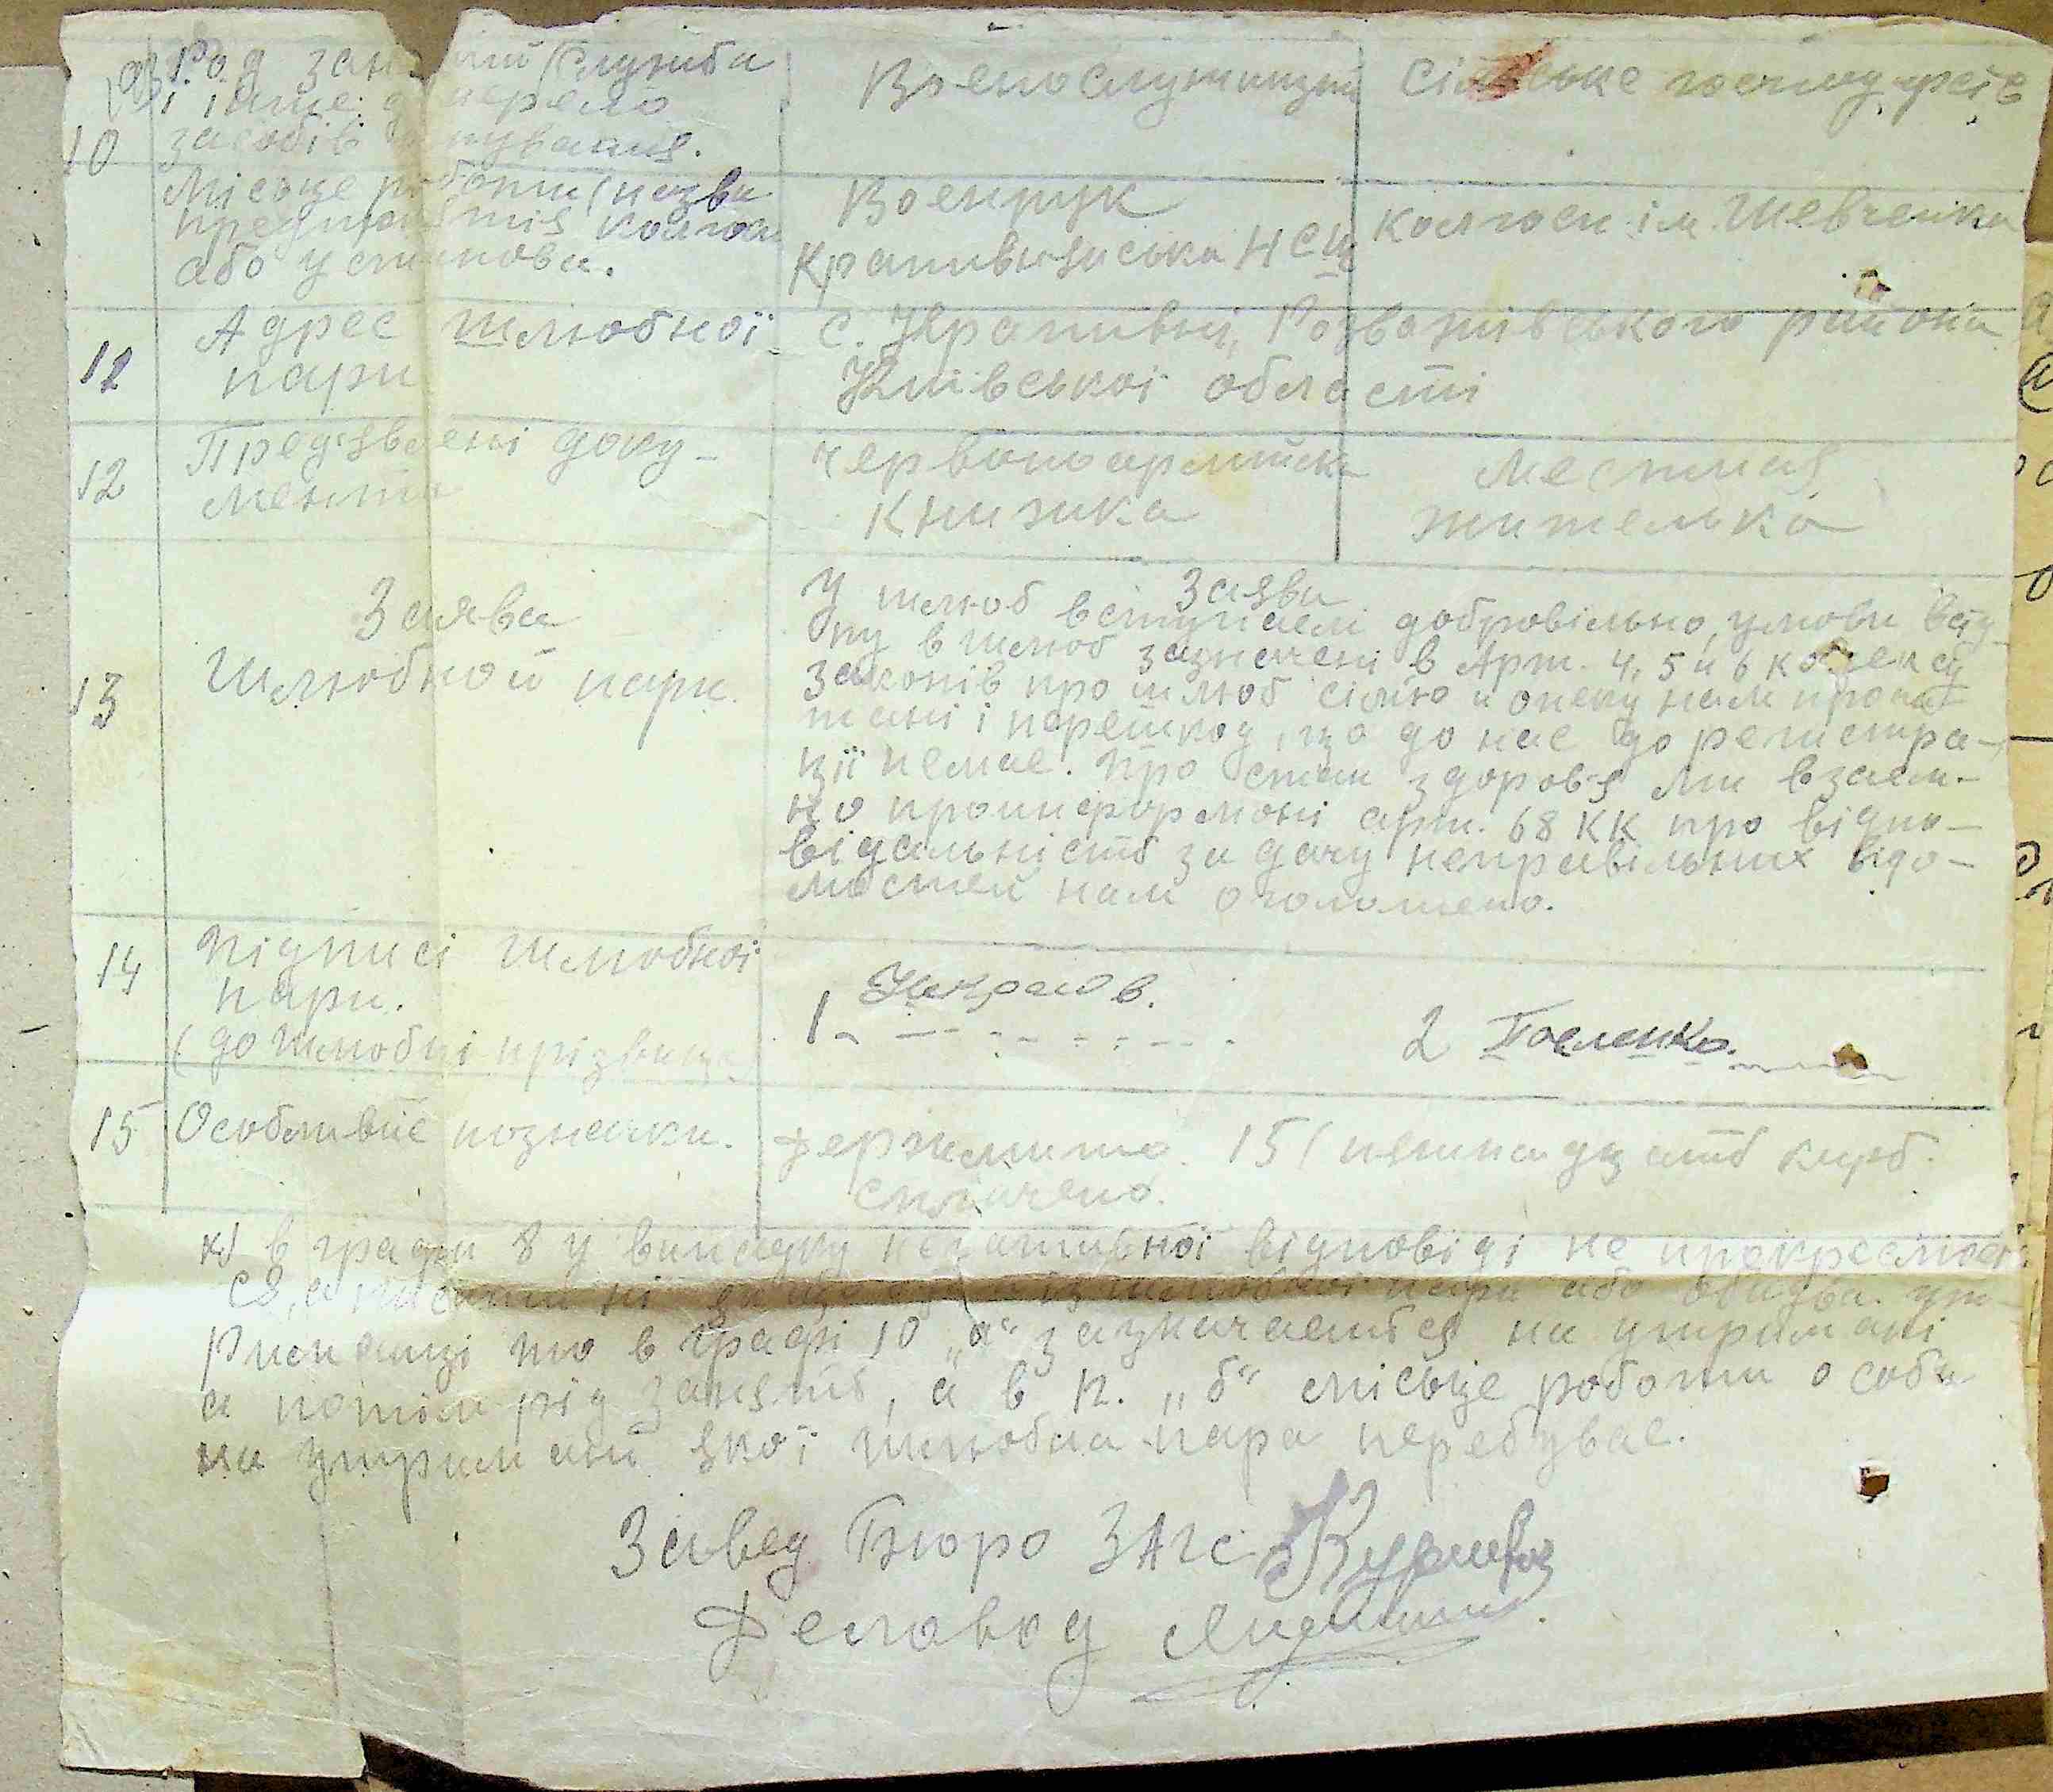 а) Род занять (служба
і інше джерело
10 засобів існування.
Воєнослужищий
Сільське господарств
Місце роботи (назва
предприємтія колгосп
або установи.
Военрук
Крапивнянська НСШ
Колгосп ім. Шевченка
12 Адрес шлюбної
пари
с. Крапивні, Розважівського района
Київської області
12 Предъявлені доку-
менти
Червоноармійська
книжка
Местная
жителька
13 Заява
Шлюбной пари.
Заява
У шлюб вступаєм добровільно, умови всту-
пу в шлюб зазначені в Арт. 4, 5 и 6 кодексу
законів про шлюб сімю и опеку нам прочи
тані і перешкод, що до нас до регистра-
ції немає. Про стан здоров'я ми взаєм-
но проинформоні арт. 68 КК про відпо-
відальність за дачу неправільних відо-
мостей нам оголошено.
14 Підписі шлюбної
пари.
(до шлюбні прізвища)
1 Некрасов.
2
15 Особливіє позначки.
Держмито 15 (пятнадцать карб.
сплачено.
х) в графи 8 у випадку негативної відповіді не прекреслюєть
ся, а писати ні із шлюбної пари або обидва ут-
риманці то в графі 10 „а“ зазначається на утримані
а потім рід занять, а в п. „б“ місьце роботи особи
на утримані якої шлюбна пара перебуває.
Завед Бюро ЗАГС
Деловод